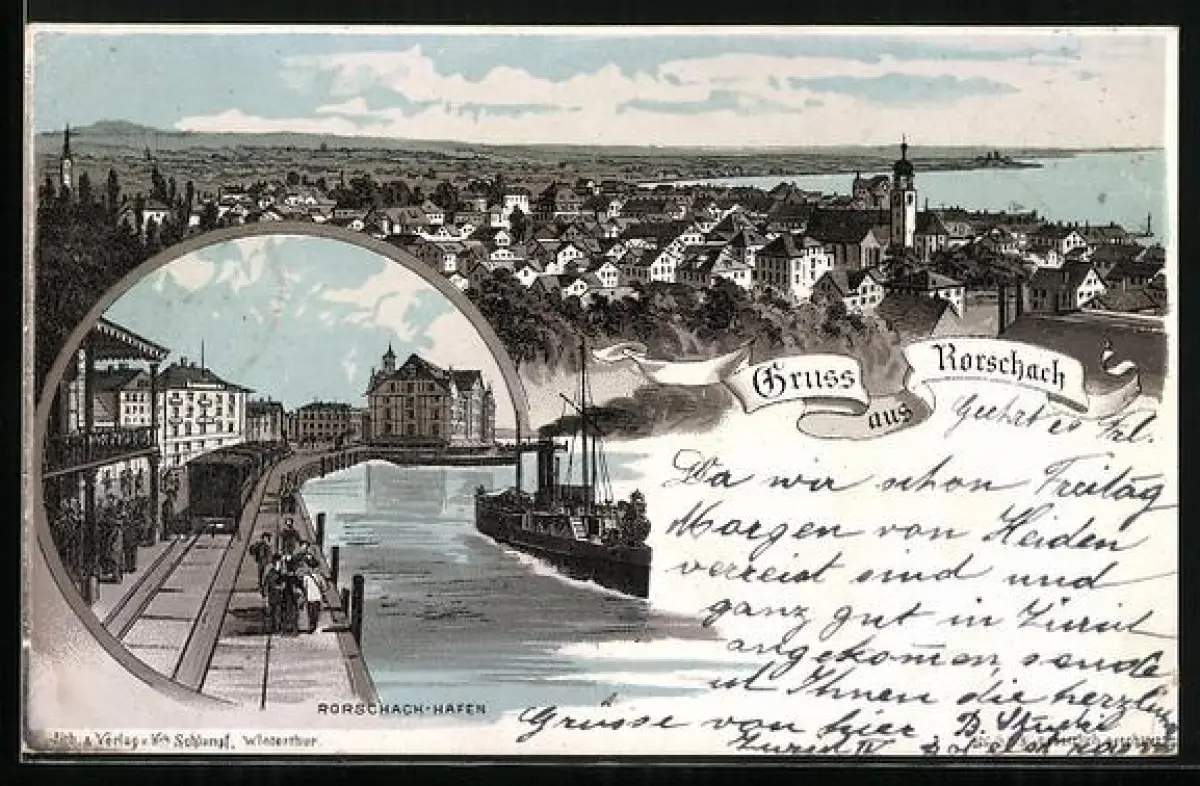 Gruss
aus
Rorschach
Geehrtes Frl.
Da wir schon Freitag
Morgen von Heiden
verreist sind und
ganz gut in Zürich
angekommen, sende
ich Ihnen die herzlichen
Grüsse von hier B.
Zürich IV
RORSCHACH-HAFEN
Lith. & Verlag v. Schlumpf, Winterthur.